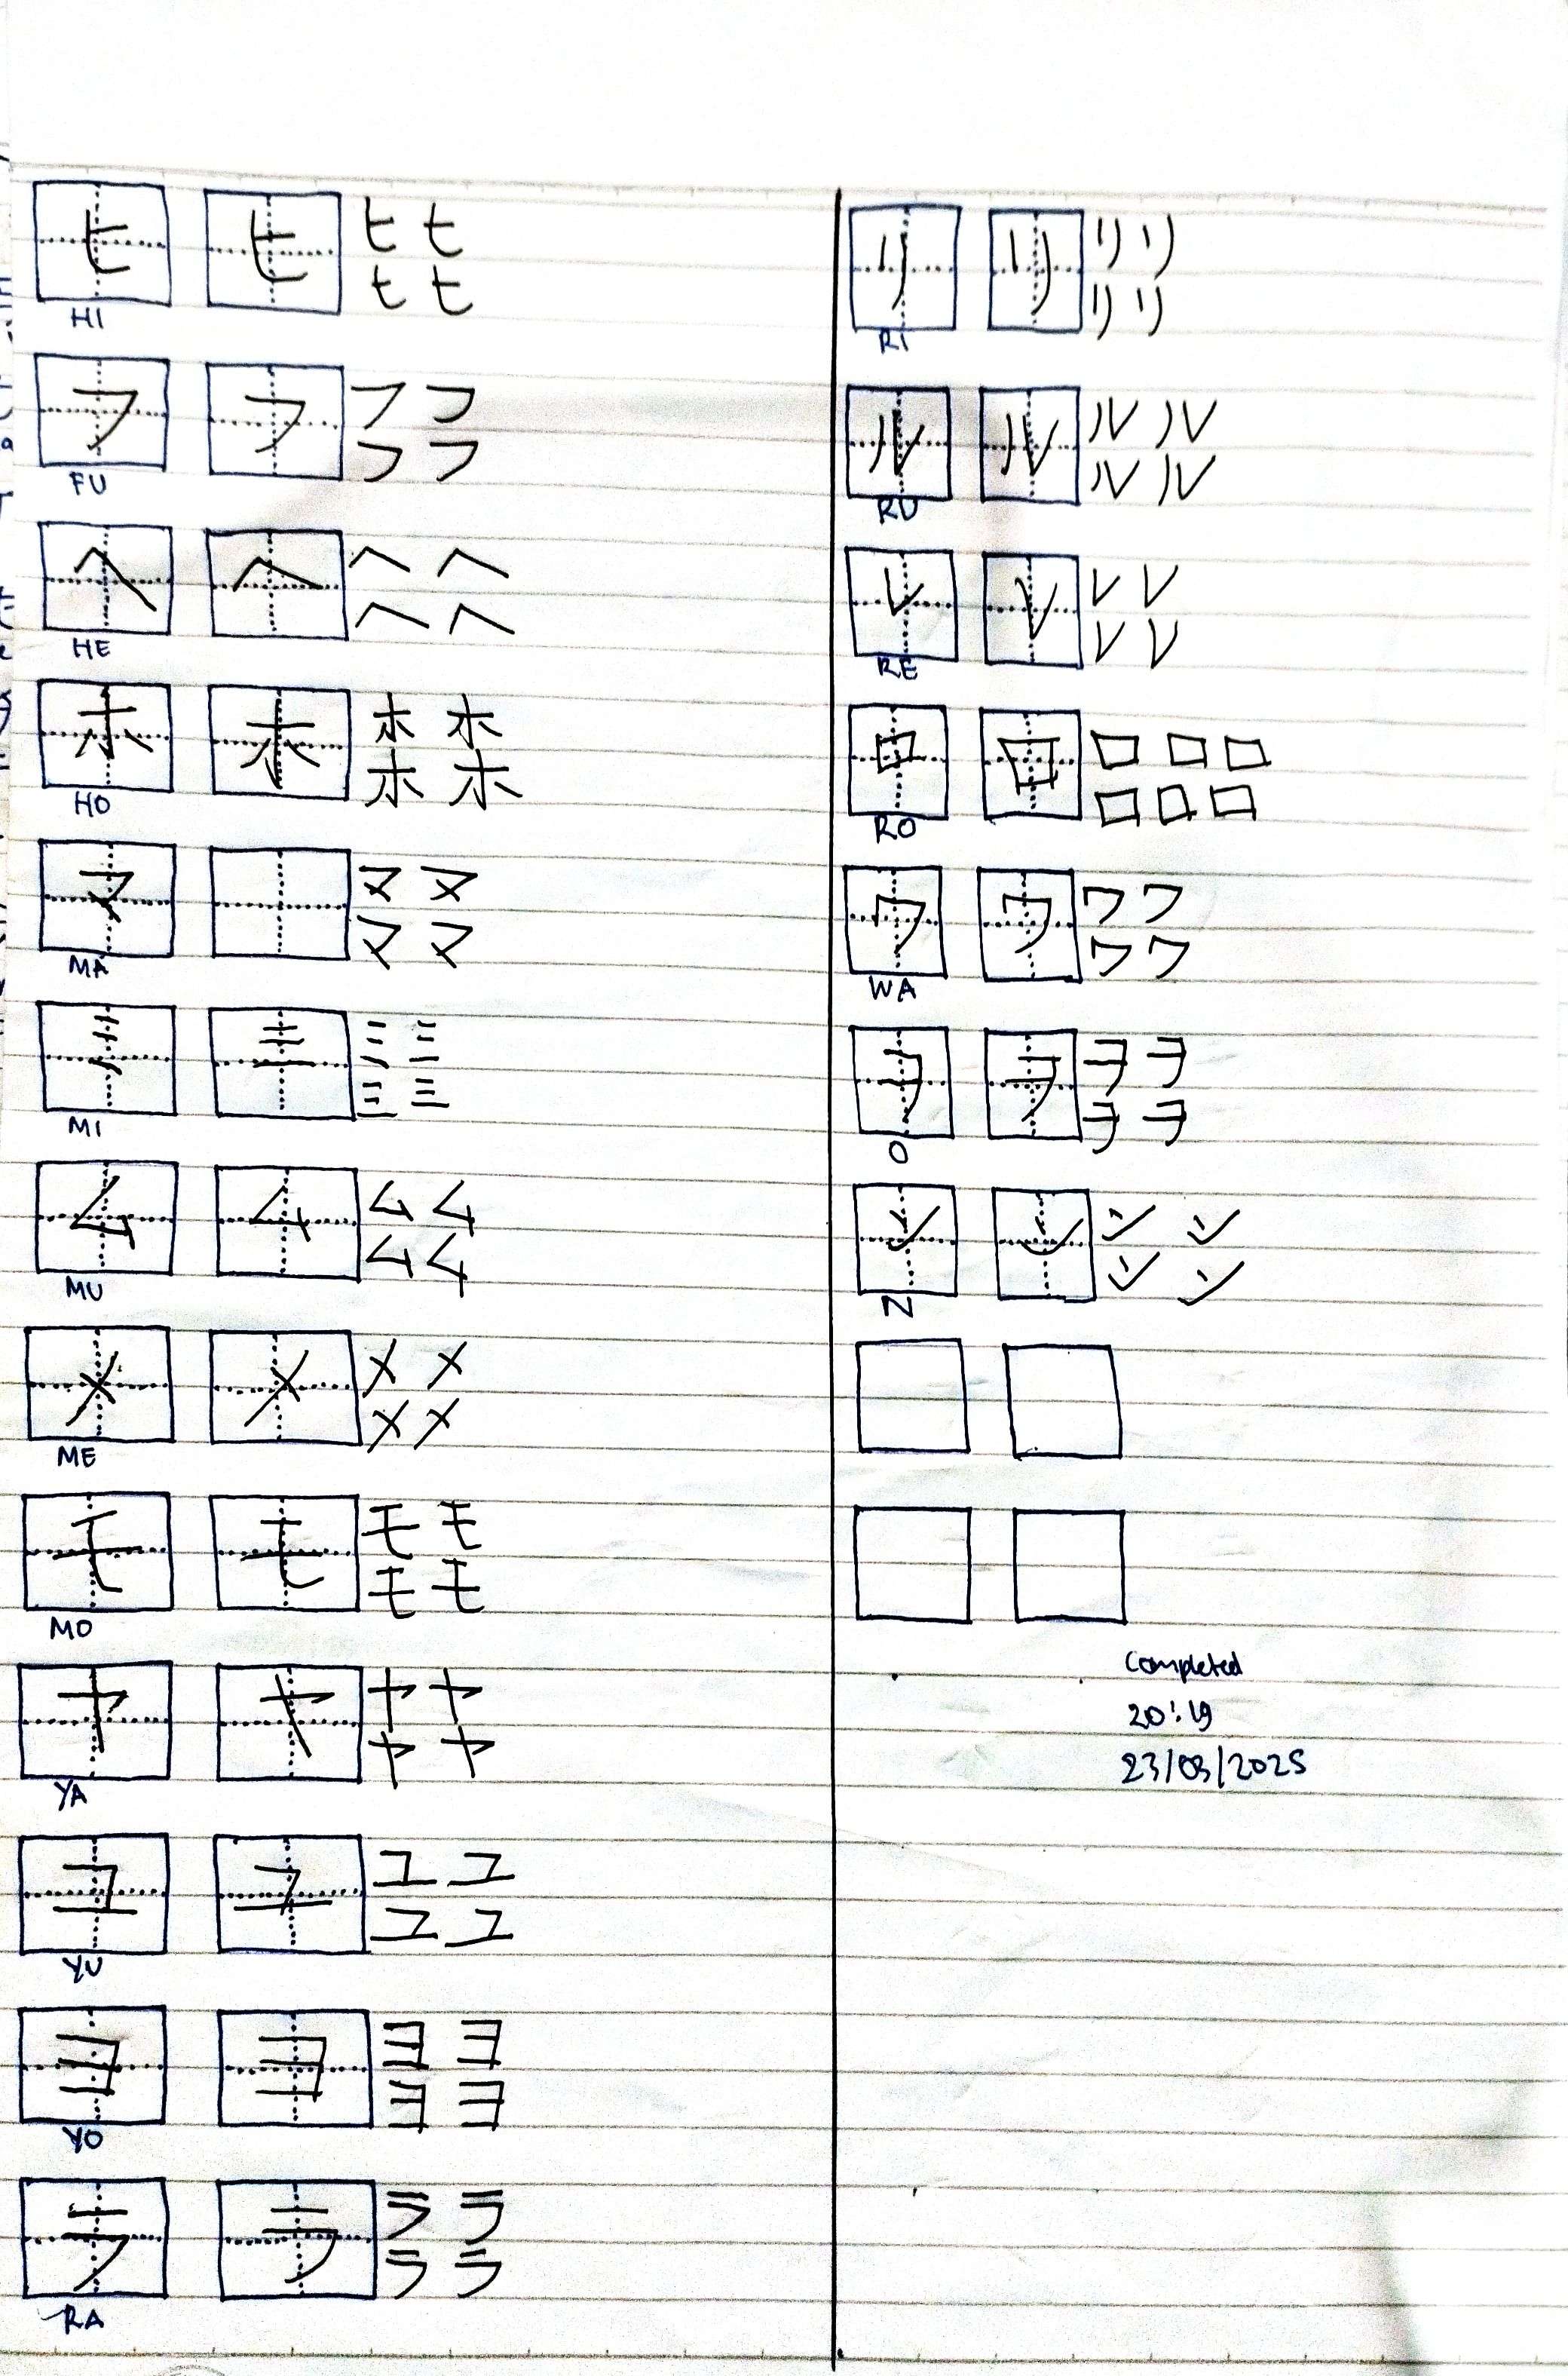 ヒ ヒ ヒ ヒ
ヒ ヒ
HI
フ フ フ フ
フ フ
FU
ヘ ヘ ヘ ヘ
ヘ ヘ
HE
ホ ホ ホ ホ
ホ ホ
HO
マ マ マ
マ マ
MA
ミ ミ ミ ミ
ミ ミ
MI
ム ム ム ム
ム ム
MU
メ メ メ メ
メ メ
ME
モ モ モ モ
モ モ
MO
ヤ ヤ ヤ ヤ
ヤ ヤ
YA
ユ ユ ユ ユ
ユ ユ
YU
ヨ ヨ ヨ ヨ
ヨ ヨ
YO
ラ ラ ラ ラ
ラ ラ
RA
リ リ リ リ
リ リ
RI
ル ル ル ル
ル ル
RU
レ レ レ レ
レ レ
RE
ロ ロ ロ ロ ロ
ロ ロ ロ
RO
ワ ワ ワ ワ
ワ ワ
WA
ヲ ヲ ヲ ヲ
ヲ ヲ
O
ン ン ン ン
ン ン
N
Completed
20:19
23/09/2025